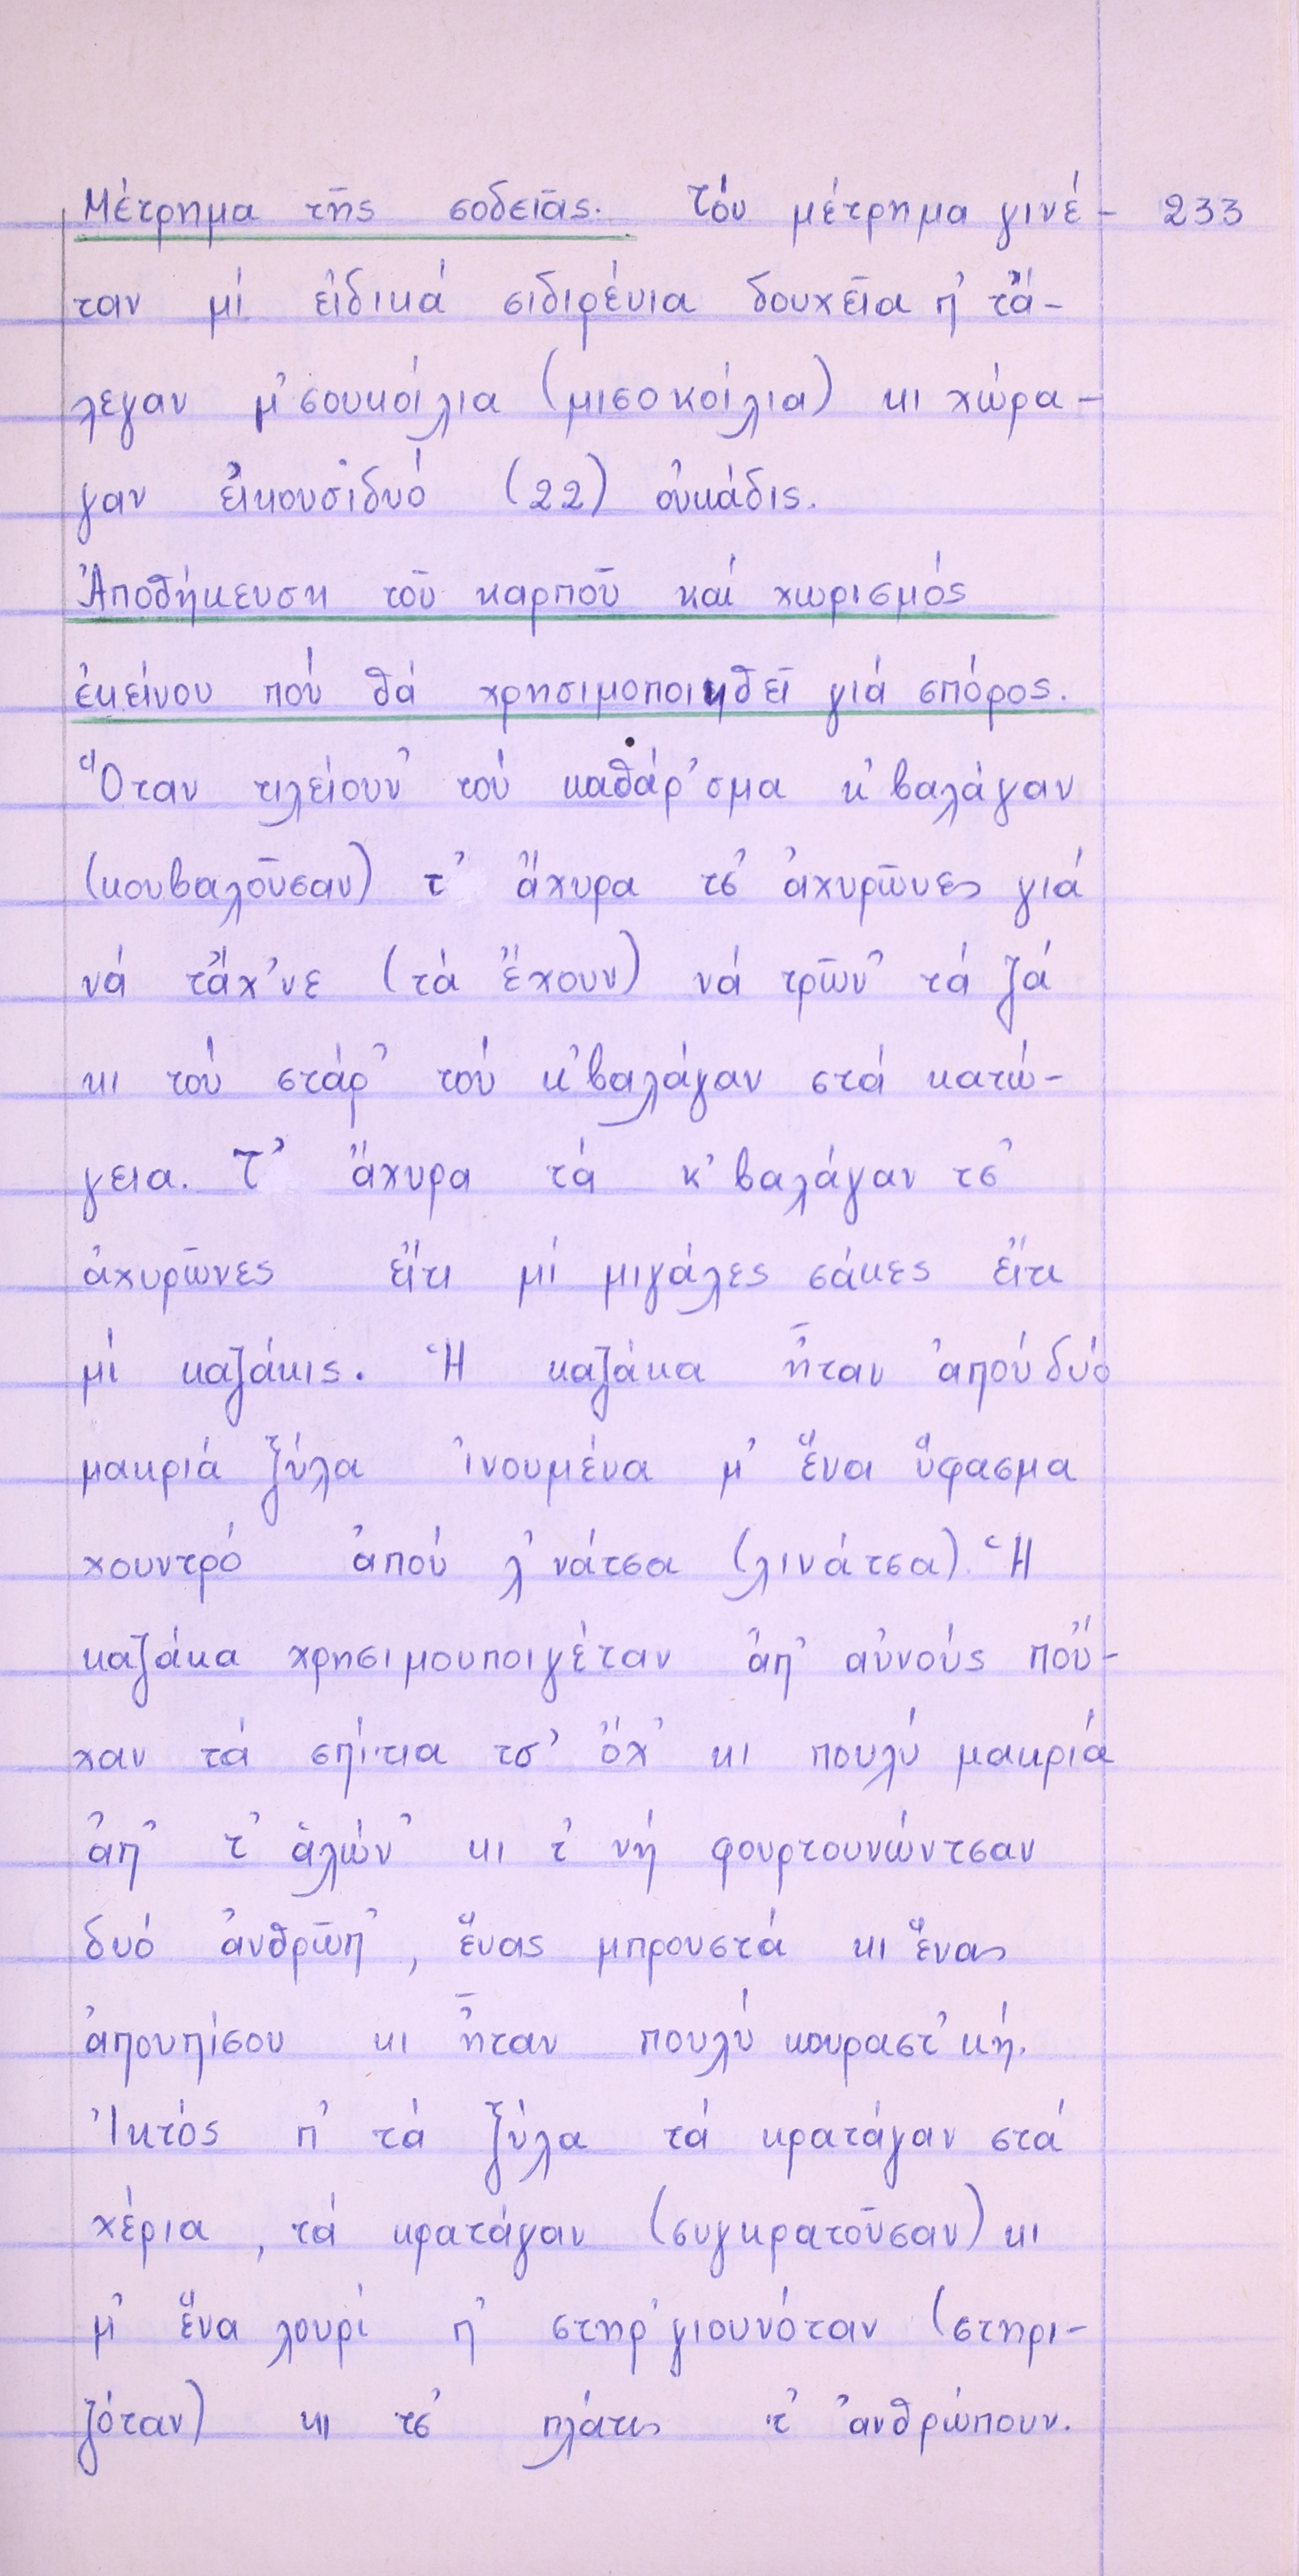 Μέτρημα τῆς σοδειᾶς. Τόυ μέτρημα γινέ- 233
ταν μί εἰδικά σιδιρένια δουχεῖα π' τἄ-
λεγαν μ'σουκοίλια (μισοκοίλια) κι χώρα-
γαν εἰκουσιδυό (22) οὐκάδις.
Ἀποθήκευση τοῦ καρποῦ καί χωρισμός
ἐκείνου πού θά χρησιμοποιηθεῖ γιά σπόρος.
Ὅταν τιλείουν' τού καθάρ'σμα κ'βαλάγαν
(κουβαλοῦσαν) τ' ἄχυρα τσ' ἀχυρῶνες γιά
νά τἄχ'νε (τά ἔχουν) νά τρῶν' τά ζά
κι τού στάρ' τού κ'βαλάγαν στά κατώ-
γεια. Τ' ἄχυρα τά κ'βαλάγαν τσ'
ἀχυρῶνες εἴτι μί μιγάλες σάκες εἴτι
μί καζάκις. Ἡ καζάκα ἦταν ἀπού δυό
μακριά ξύλα ἰνουμένα μ' ἕνα ὕφασμα
χουντρό ἀπού λ'νάτσα (λινάτσα). Ἡ
καζάκα χρησιμουποιγέταν ἀπ' αὐνούς πού-
χαν τά σπίτια τσ' ὄχ' κι πουλύ μακριά
ἀπ' τ' ἁλών' κι τ' νή φουρτουνώντσαν
δυό ἀνθρῶπ', ἕνας μπρουστά κι ἕνας
ἀπουπίσου κι ἦταν πουλύ κουραστ'κή.
Ἰκτός π' τά ξύλα τά κρατάγαν στά
χέρια, τά κρατάγαν (συγκρατοῦσαν) κι
μ' ἕνα λουρί π' στηρ'γιουνόταν (στηρι-
ζόταν) κι τσ' πλάτις τ' ἀνθρώπουν.